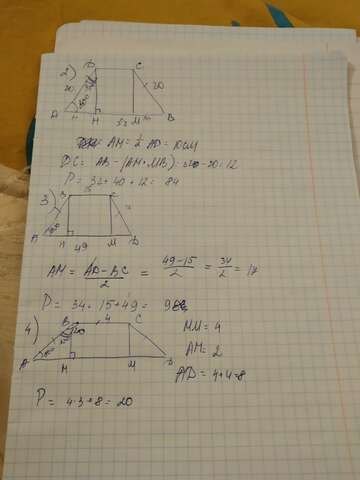 2)
D C
20 20
60°
A H 32 M B
AH = ½ AD = 10см
DC = AB - (AH + MB) = 32 - 20 = 12
P = 32 + 40 + 12 = 84
3)
B 15 C
A 60° H M D
49
AH = AD - BC / 2 = 49-15 / 2 = 34 / 2 = 17
P = 34 + 15 + 49 = 98
4)
B 4 C
A H M D
HM = 4
AH = 2
AD = 4+4=8
P = 4·3+8 = 20